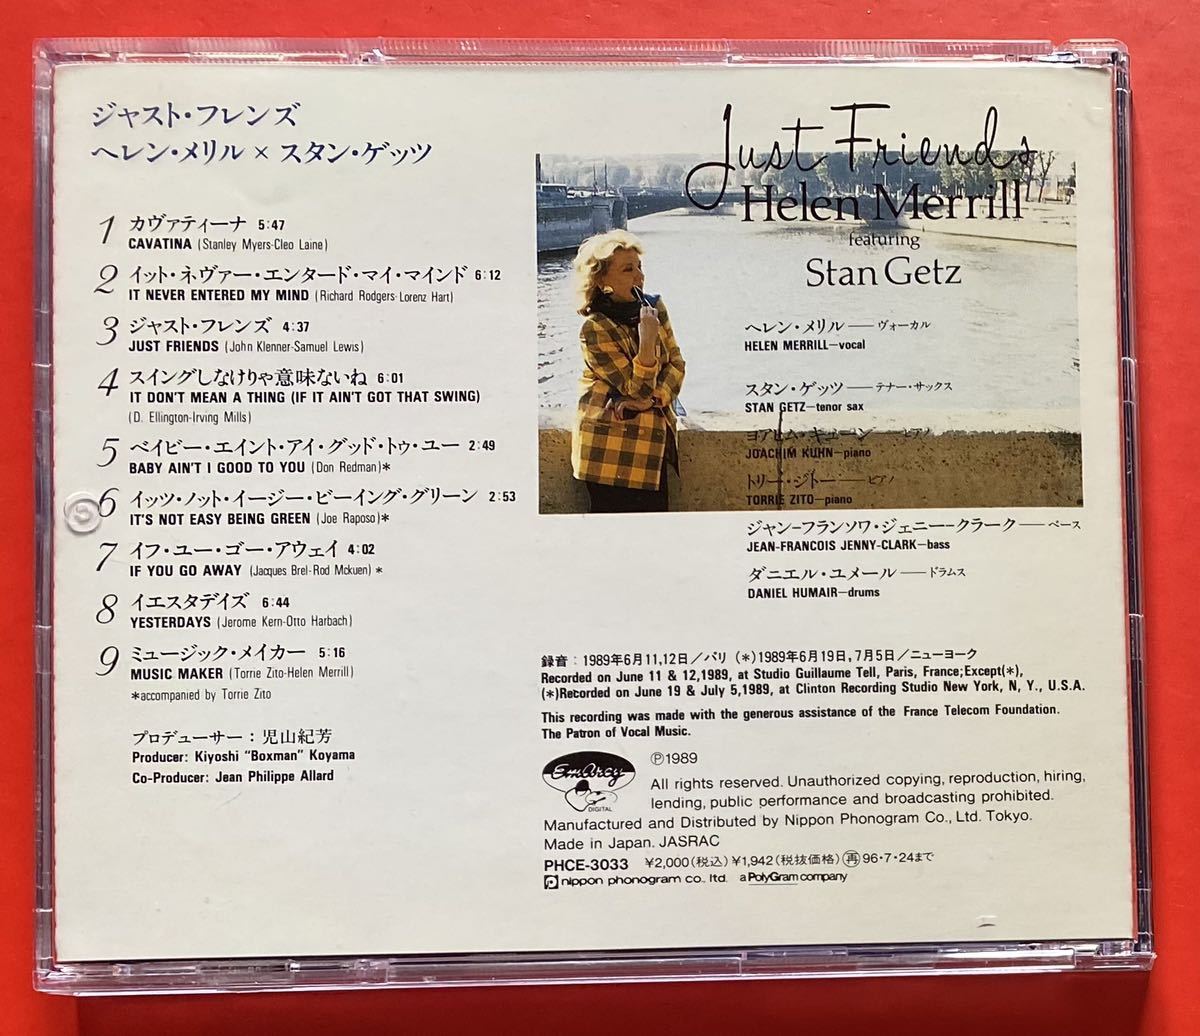 ジャスト・フレンズ
ヘレン・メリル×スタン・ゲッツ
1 カヴァティーナ 5:47
CAVATINA (Stanley Myers-Cleo Laine)
2 イット・ネヴァー・エンタード・マイ・マインド 6:12
IT NEVER ENTERED MY MIND (Richard Rodgers-Lorenz Hart)
3 ジャスト・フレンズ 4:37
JUST FRIENDS (John Klenner-Samuel Lewis)
4 スイングしなけりゃ意味ないね 6:01
IT DON'T MEAN A THING (IF IT AIN'T GOT THAT SWING)
(D. Ellington-Irving Mills)
5 ベイビー・エイント・アイ・グッド・トゥ・ユー 2:49
BABY AIN'T I GOOD TO YOU (Don Redman)*
6 イッツ・ノット・イージー・ビーイング・グリーン 2:53
IT'S NOT EASY BEING GREEN (Joe Raposo)*
7 イフ・ユー・ゴー・アウェイ 4:02
IF YOU GO AWAY (Jacques Brel-Rod Mckuen)*
8 イエスタデイズ 6:44
YESTERDAYS (Jerome Kern-Otto Harbach)
9 ミュージック・メイカー 5:16
MUSIC MAKER (Torrie Zito-Helen Merrill)
*accompanied by Torrie Zito
プロデューサー：児山紀芳
Producer: Kiyoshi "Boxman" Koyama
Co-Producer: Jean Philippe Allard
Just Friends
Helen Merrill
featuring
Stan Getz
ヘレン・メリル——ヴォーカル
HELEN MERRILL—vocal
スタン・ゲッツ——テナー・サックス
STAN GETZ—tenor sax
ヨアヒム・キューン——ピアノ
JOACHIM KUHN—piano
トリー・ジトー——ピアノ
TORRIE ZITO—piano
ジャン-フランソワ・ジェニー-クラーク——ベース
JEAN-FRANCOIS JENNY-CLARK—bass
ダニエル・ユメール——ドラムス
DANIEL HUMAIR—drums
録音：1989年6月11,12日／パリ (*)1989年6月19日,7月5日／ニューヨーク
Recorded on June 11 & 12,1989, at Studio Guillaume Tell, Paris, France;Except(*),
(*)Recorded on June 19 & July 5,1989, at Clinton Recording Studio New York, N, Y., U.S.A.
This recording was made with the generous assistance of the France Telecom Foundation.
The Patron of Vocal Music.
EmArcy
DIGITAL
Ⓟ1989
All rights reserved. Unauthorized copying, reproduction, hiring,
lending, public performance and broadcasting prohibited.
Manufactured and Distributed by Nippon Phonogram Co., Ltd. Tokyo.
Made in Japan. JASRAC
PHCE-3033 ¥2,000(税込)¥1,942(税抜価格)㊢96・7・24まで
nippon phonogram co., ltd. a PolyGram company